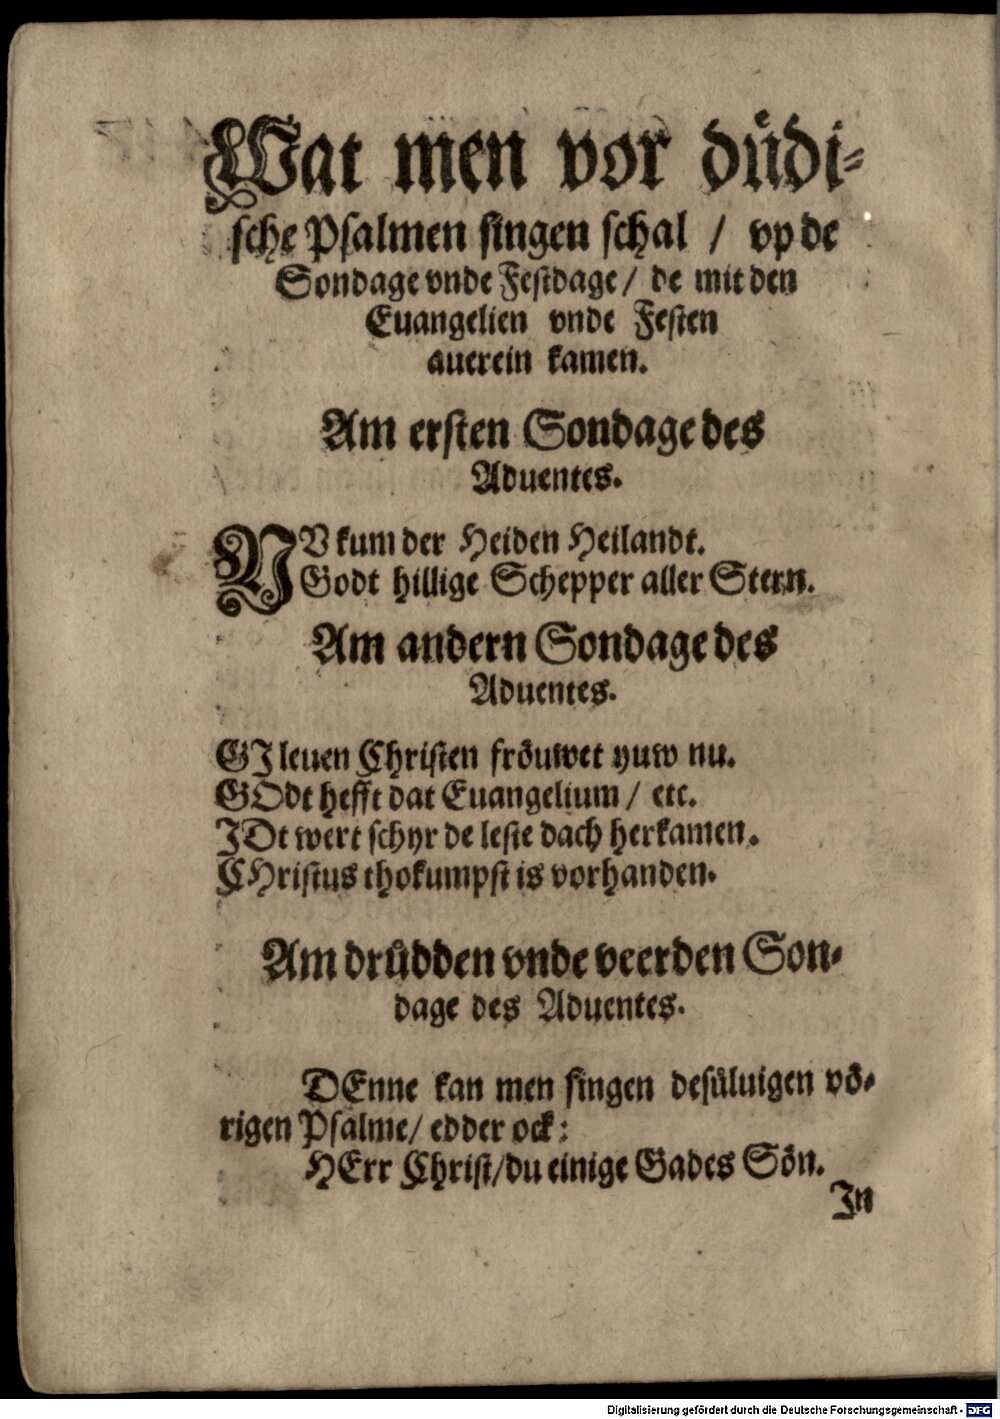 Wat men vor düdi-
sche Psalmen singen schal / vp de
Sondage vnde Festdage / de mit den
Euangelien vnde Festen
auerein kamen.
Am ersten Sondage des
Aduentes.
NV kum der Heiden Heilandt.
Godt hillige Schepper aller Stern.
Am andern Sondage des
Aduentes.
GJ leuen Christen fröuwet yuw nu.
GOdt hefft dat Euangelium / etc.
JDt wert schyr de leste dach herkamen.
CHristus thokumpst is vorhanden.
Am drüdden vnde veerden Son-
dage des Aduentes.
DEnne kan men singen desüluigen vö-
rigen Psalme / edder ock:
HErr Christ / du einige Gades Sön.
In
Digitalisierung gefördert durch die Deutsche Forschungsgemeinschaft - DFG